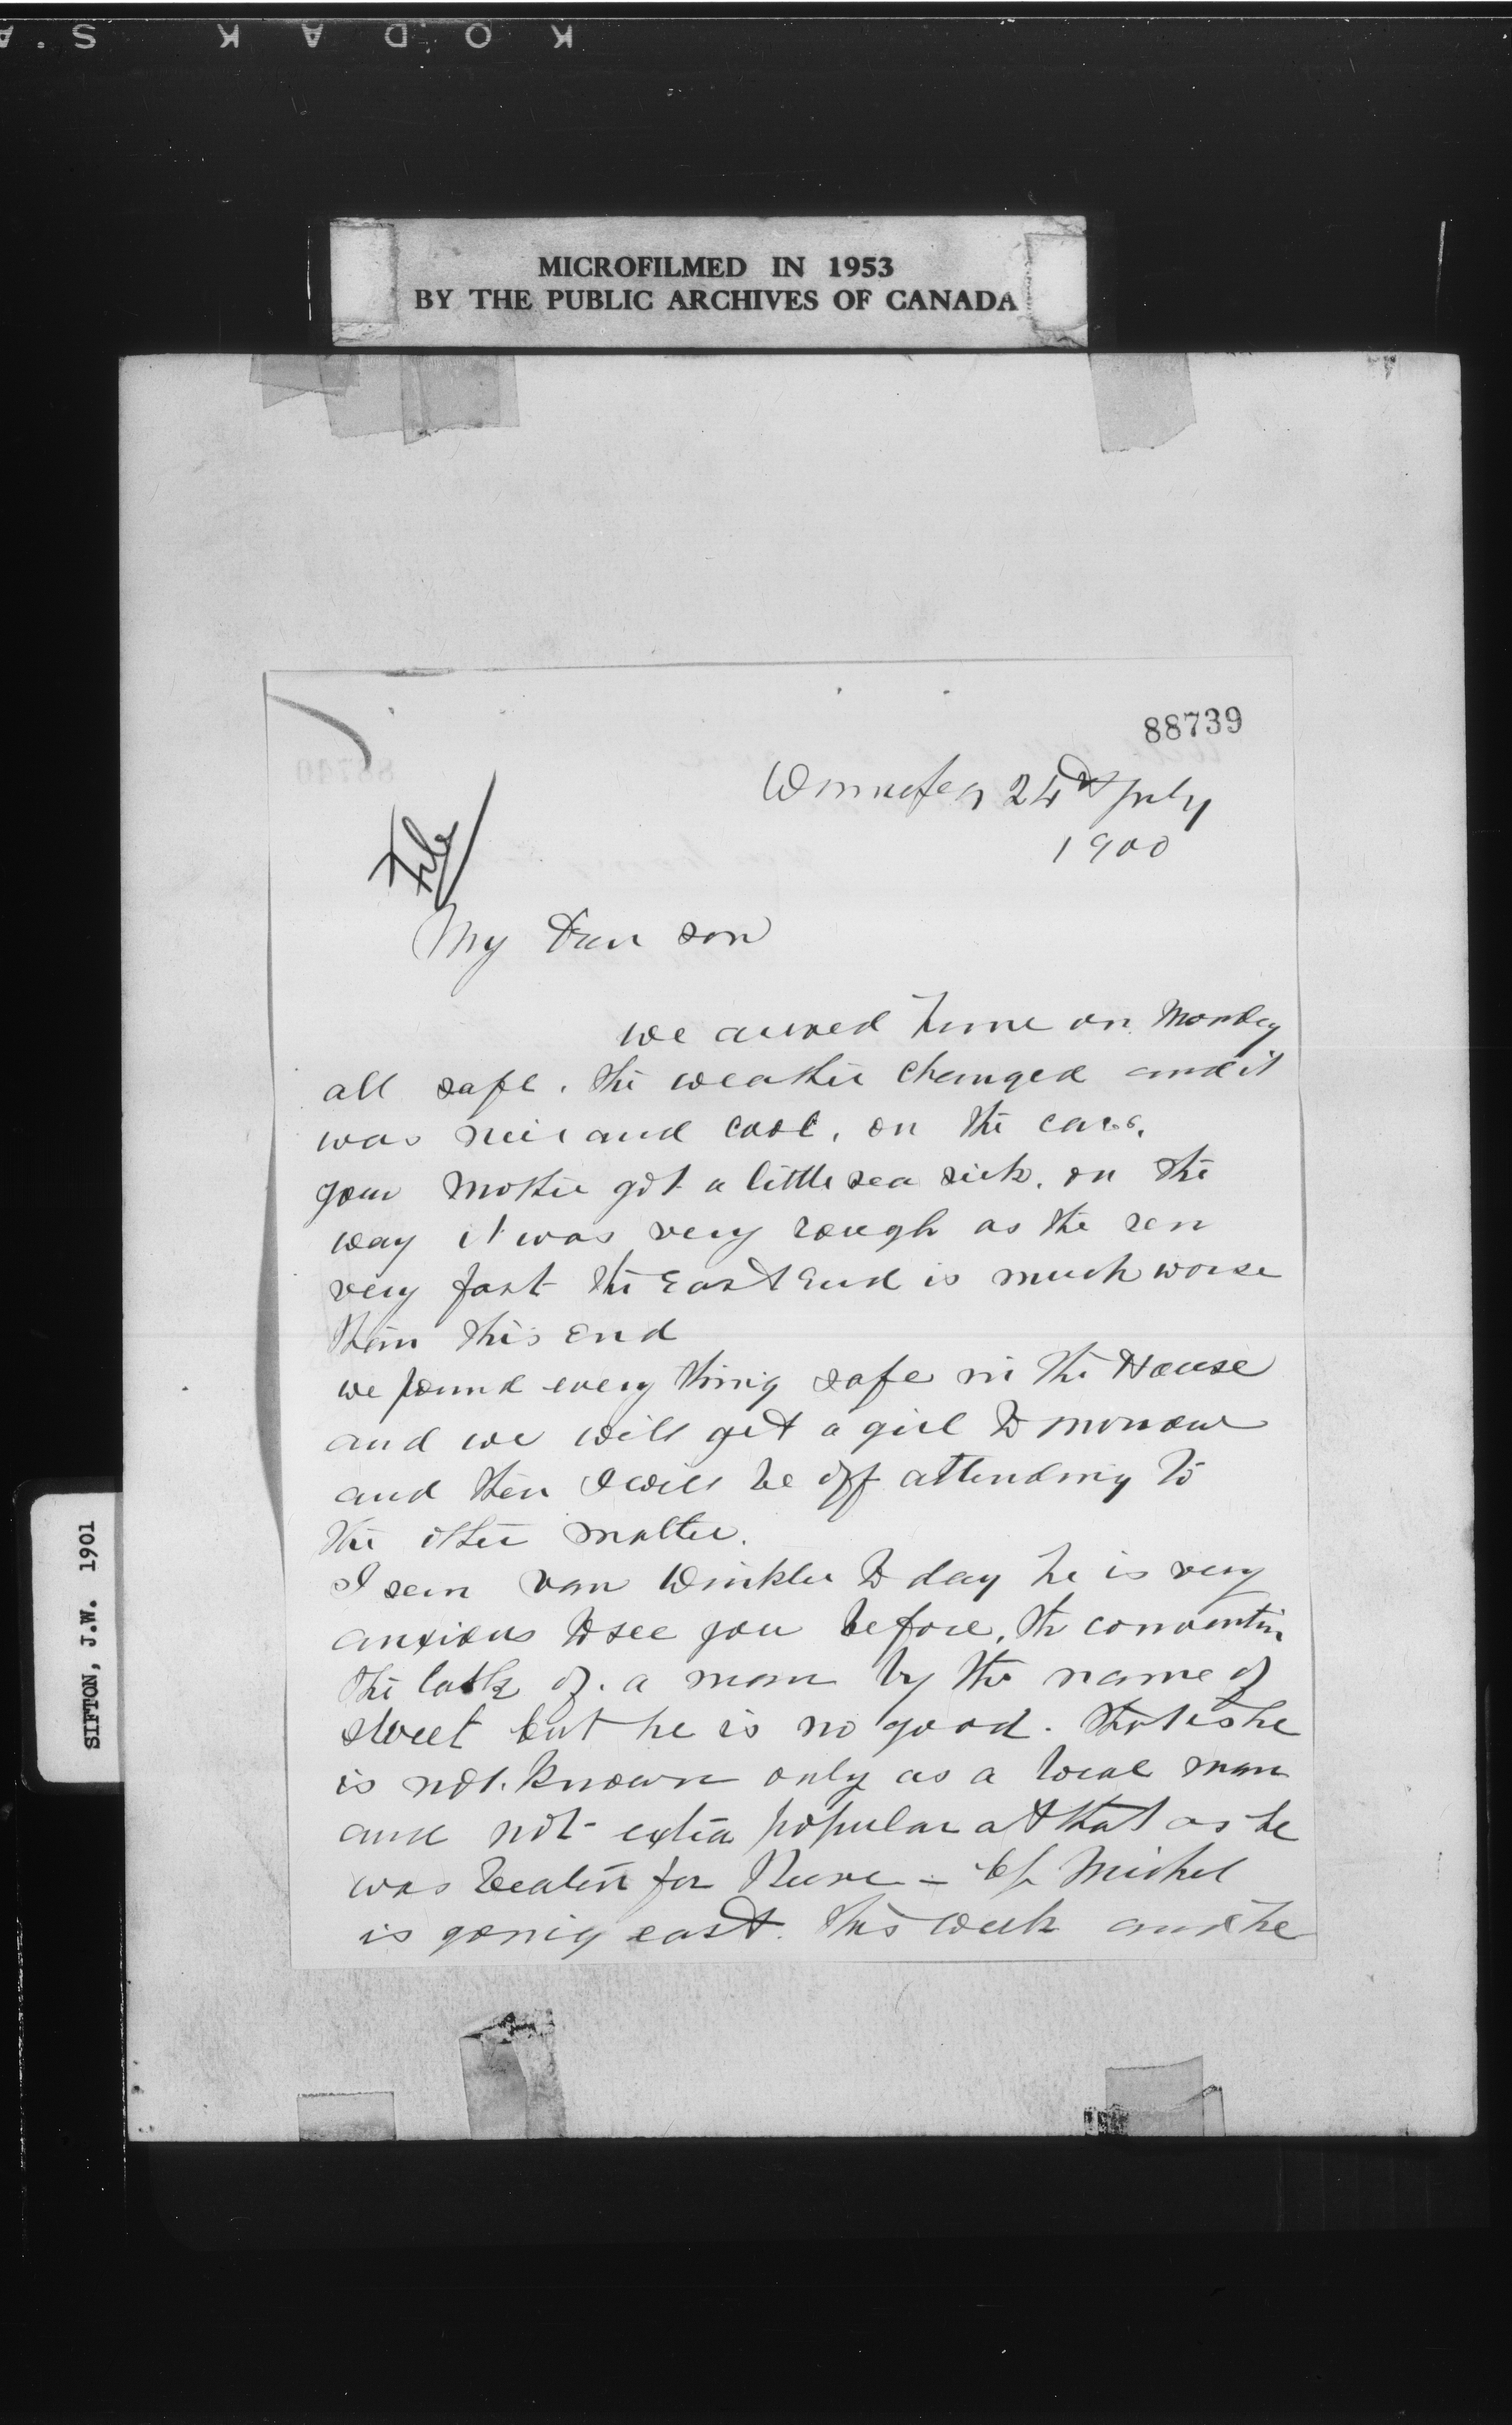 KODAK S.A
MICROFILMED IN 1953
BY THE PUBLIC ARCHIVES OF CANADA
SIFTON, J.W. 1901
88739
Winnipeg 24th July
1900
File
My Dear son
we arived home on Monday
all safe. the weather changed and it
was nice and cool, on the cars.
your Mother got a little sea sick. on the
way it was very rough as the ren
very fast the East End is much worse
than this end
we found every thing safe in the House
and we will get a girl to morrow
and then I will be off attending to
the other matter.
I seen van Winkler to day he is very
anxious to see you before, the convention
the talk of. a man by the name of
street but he is no good. that is he
is not. known only as a local man
and not extra popular at that as he
was beaten for Reeve - Michel
is going east. this week and he